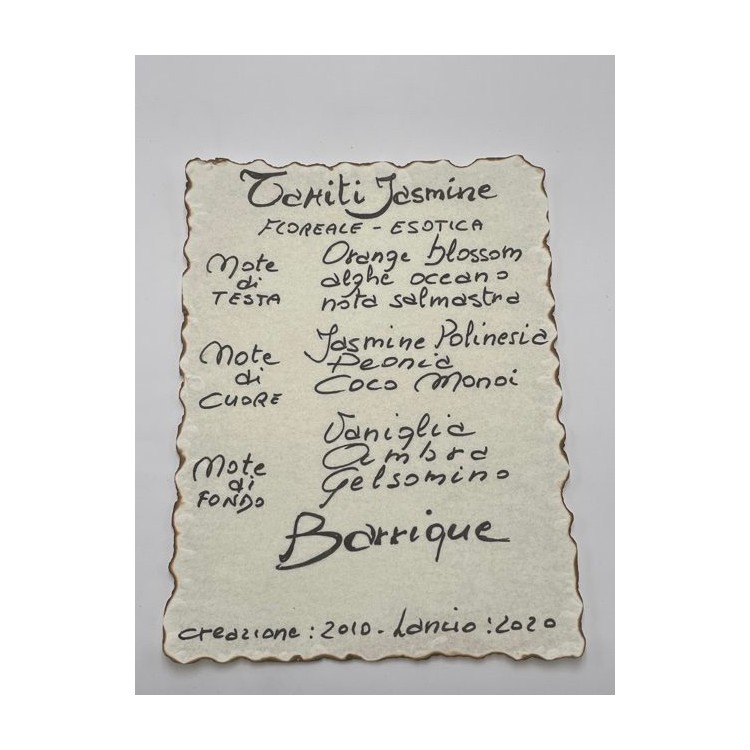 Tahiti Jasmine
FLOREALE - ESOTICA
Note di TESTA
Orange blossom
alghe oceano
nota salmastra
Note di CUORE
Jasmine Polinesia
Peonia
Coco Monoi
Note di FONDO
Vaniglia
Ambra
Gelsomino
Barrique
creazione: 2010 - Lancio: 2020